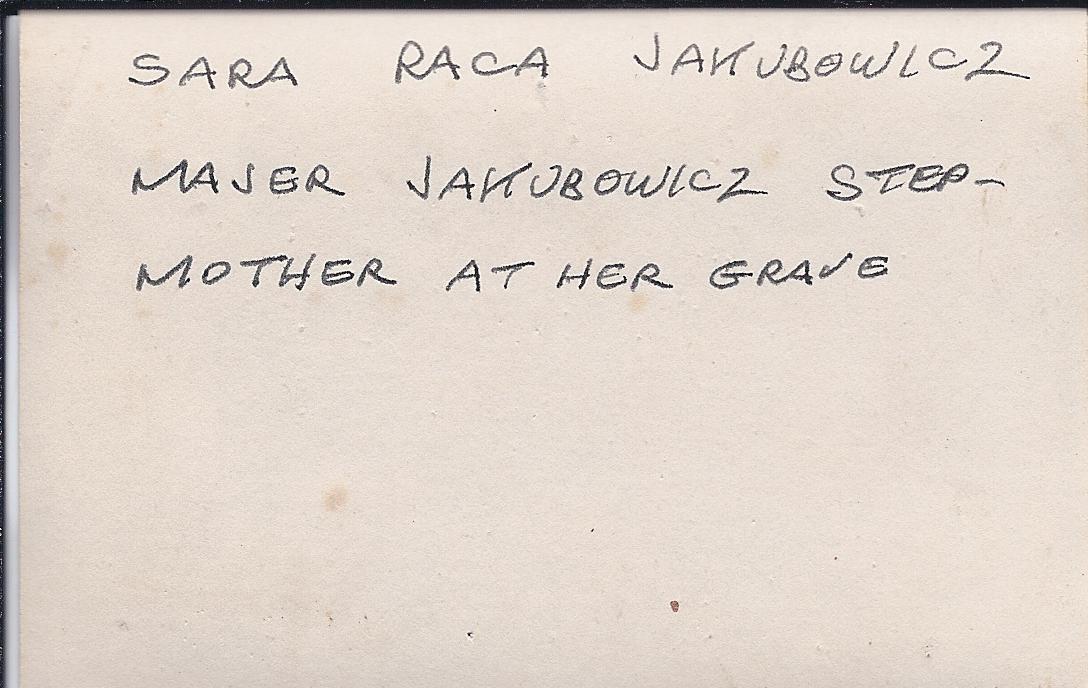 SARA RACA JAKUBOWICZ
MAJER JAKUBOWICZ STEP-
MOTHER AT HER GRAVE